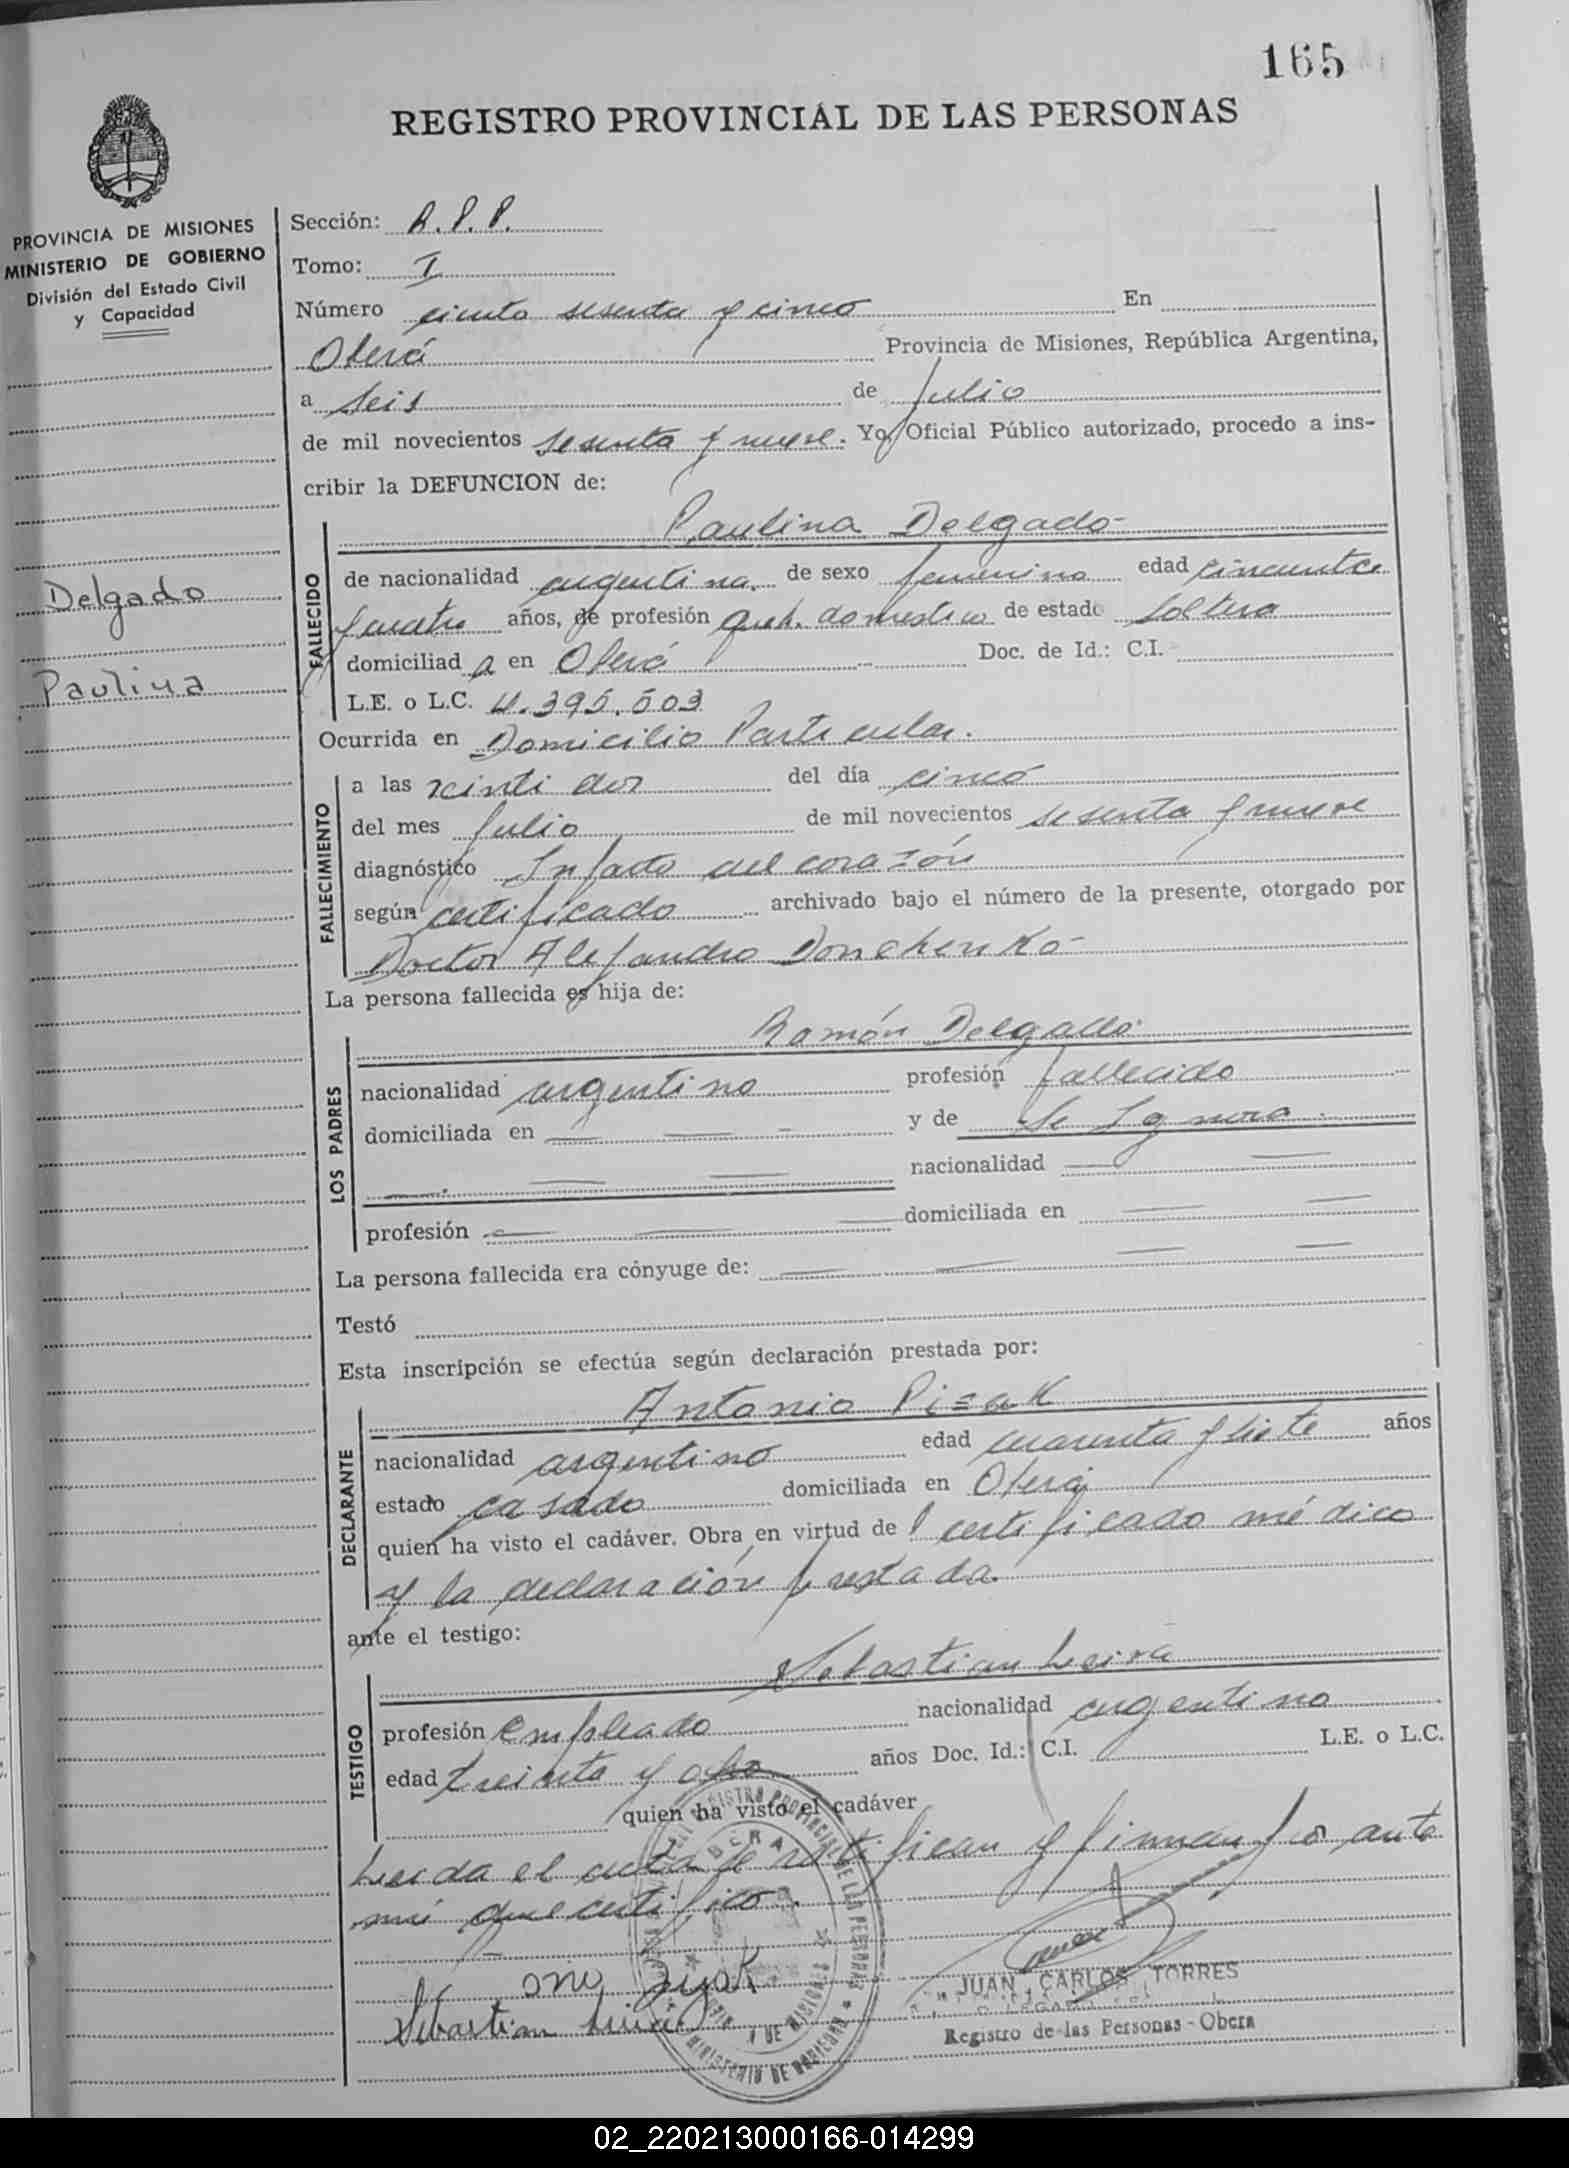 165
REGISTRO PROVINCIAL DE LAS PERSONAS
PROVINCIA DE MISIONES
MINISTERIO DE GOBIERNO
División del Estado Civil
y Capacidad
Delgado
Paulina
Sección: R.P.P.
Tomo: I
Número ciento sesenta y cinco En
Oberá Provincia de Misiones, República Argentina,
a seis de Julio
de mil novecientos sesenta y nueve. Yo, Oficial Público autorizado, procedo a ins-
cribir la DEFUNCION de:
Paulina Delgado
FALLECIDO
de nacionalidad argentina. de sexo femenino edad cincuenta
y cuatro años, de profesión queh. domestico de estado soltera
domiciliad a en Oberá Doc. de Id.: C.I.
L.E. o L.C. 4.395.503
Ocurrida en Domicilio Particular.
FALLECIMIENTO
a las veinti dos del día cinco
del mes Julio de mil novecientos sesenta y nueve
diagnóstico Infarto del corazón
según certificado archivado bajo el número de la presente, otorgado por
Doctor Alejandro Donchenko
La persona fallecida es hija de:
Ramón Delgado
LOS PADRES
nacionalidad argentino profesión fallecido
domiciliada en — — - y de Se Ignora.
nacionalidad — —
profesión — — — domiciliada en — —
La persona fallecida era cónyuge de: — — — —
Testó
Esta inscripción se efectúa según declaración prestada por:
Antonio Pizak
DECLARANTE
nacionalidad argentino edad cuarenta y siete años
estado casado domiciliada en Oberá
quien ha visto el cadáver. Obra en virtud de l certificado médico
y la declaración prestada.
ante el testigo:
Sebastian Leiva
TESTIGO
profesión empleado nacionalidad argentino
edad treinta y ocho años Doc. Id.: C.I. L.E. o L.C.
quien ha visto el cadáver
Leida el acta se ratifican y firman por ante
mi que certifico.
Sebastian
JUAN CARLOS TORRES
Registro de las Personas - Obera
REGISTRO PROVINCIAL DE LAS PERSONAS
OBERA
MINISTERIO DE GOBIERNO
02_220213000166-014299